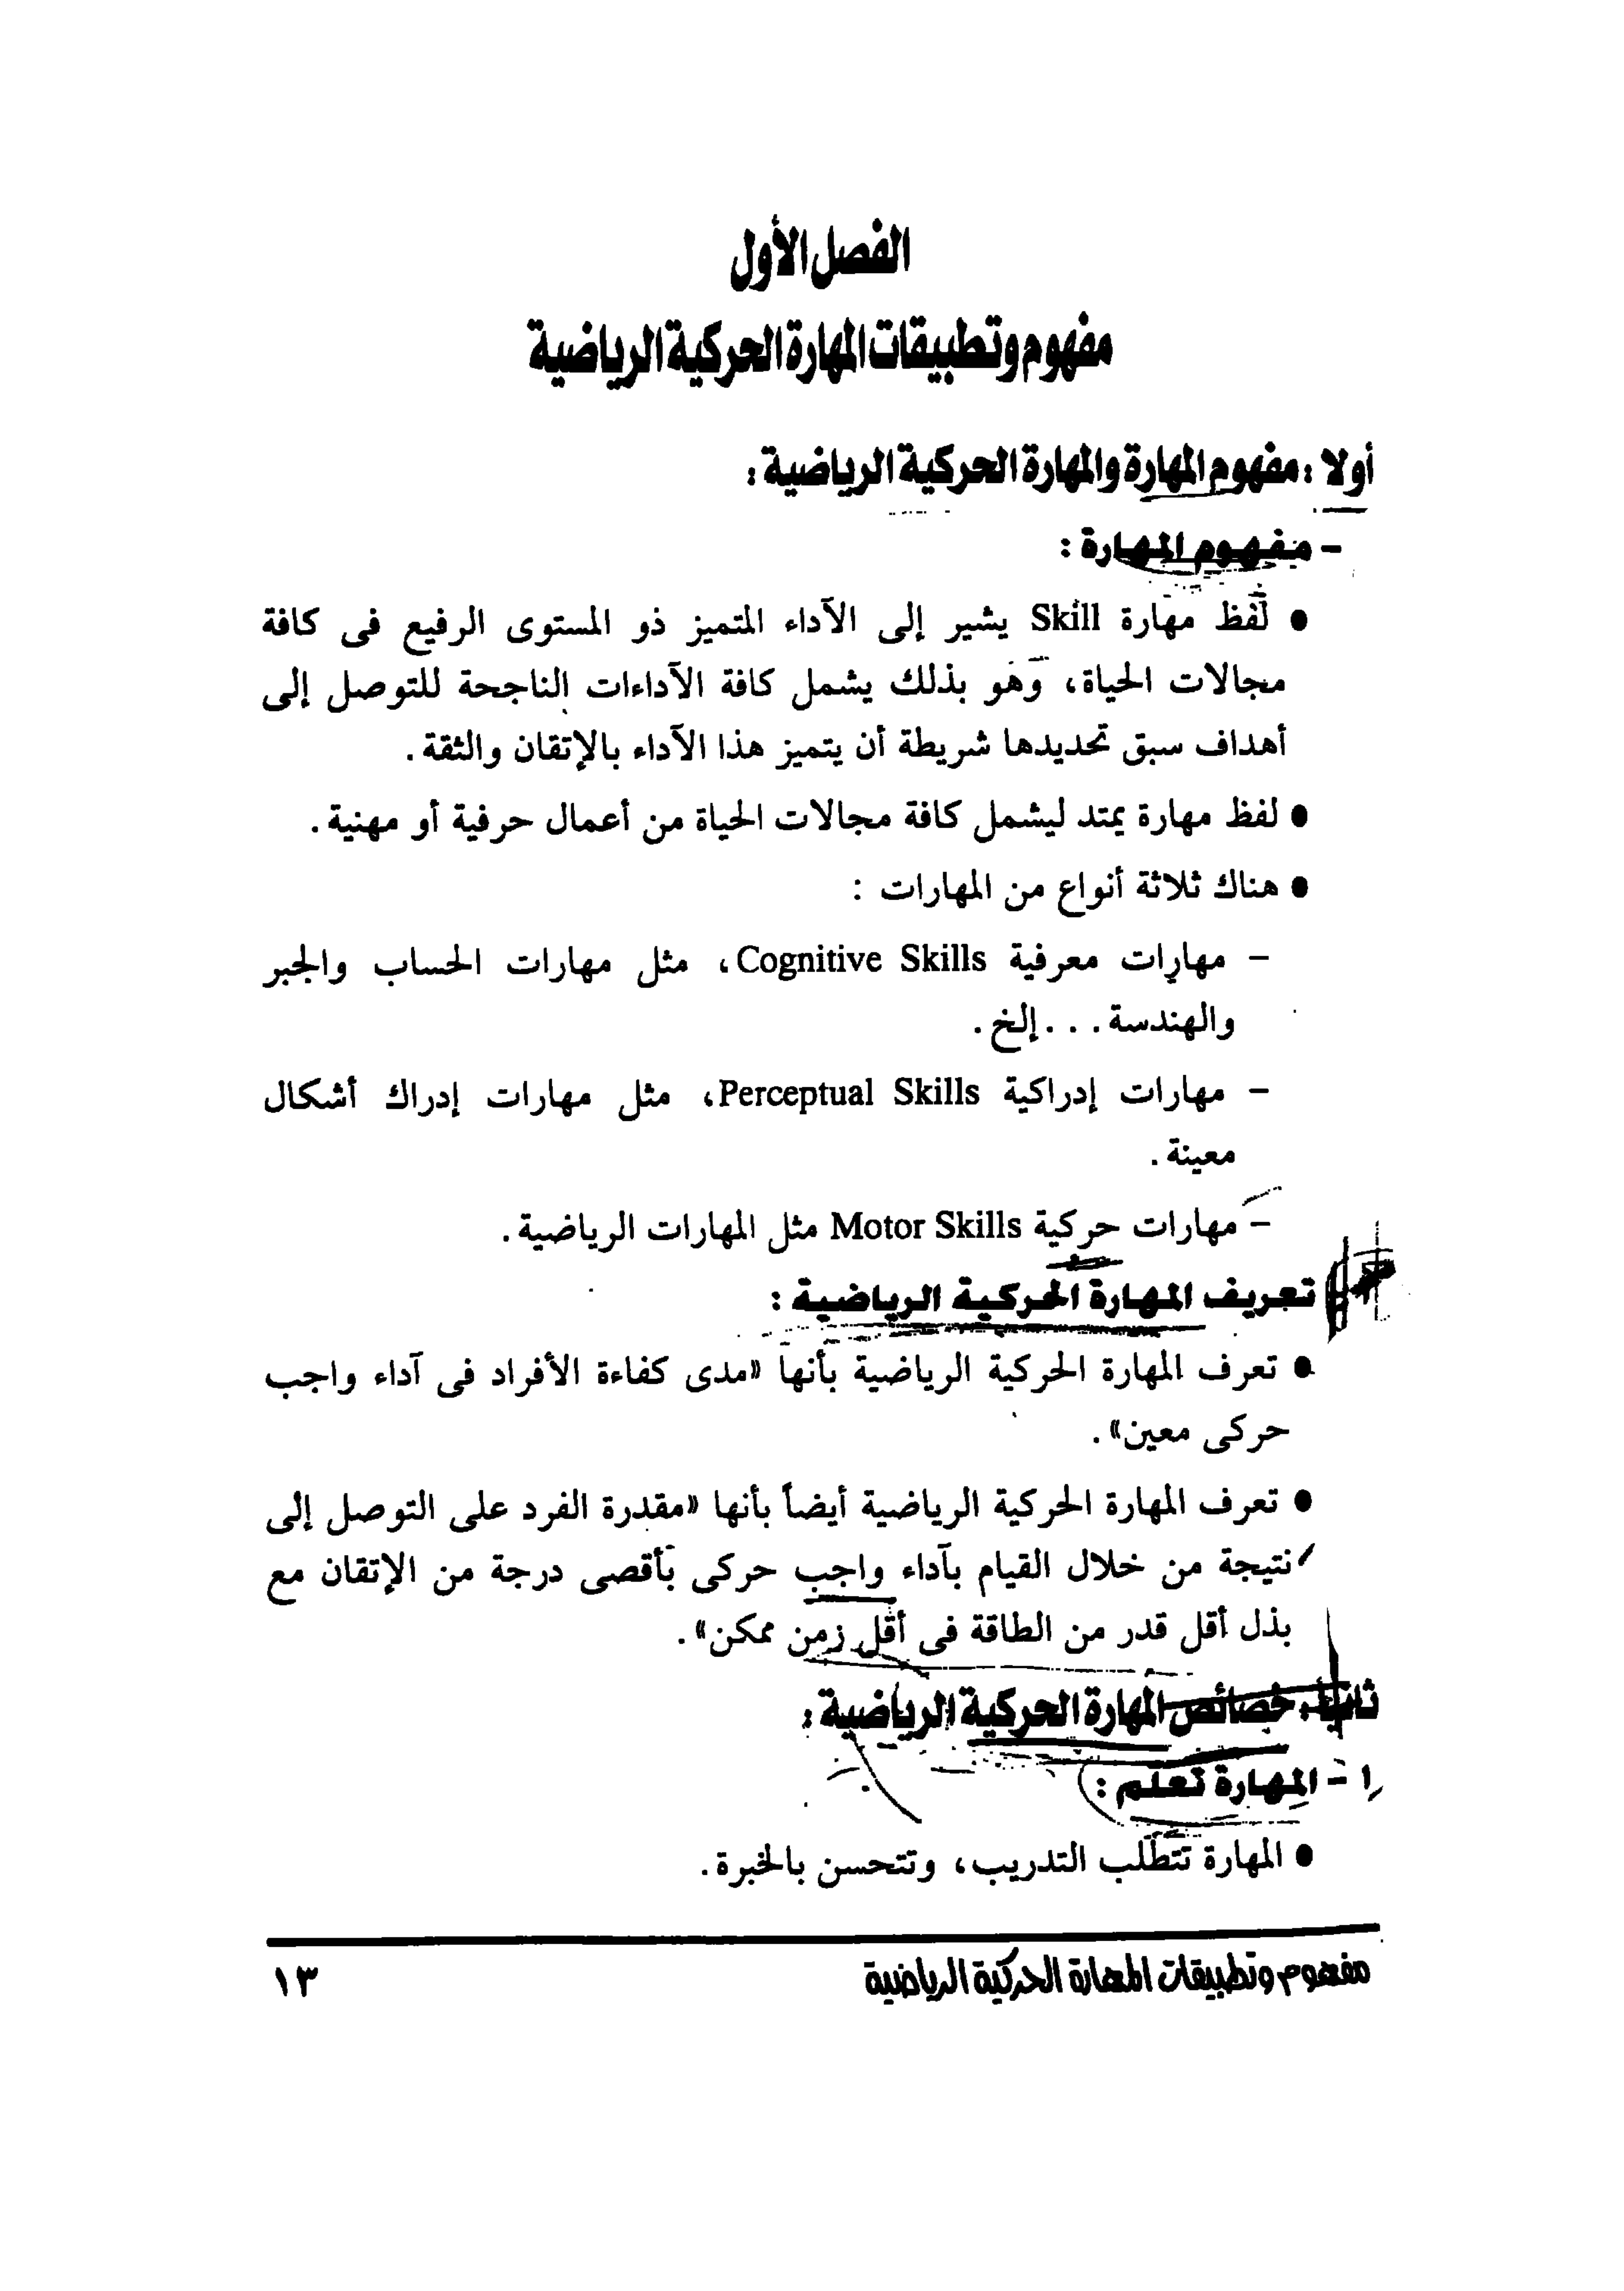 الفصل الأول
مفهوم وتطبيقات المهارة الحركية الرياضية
أولا : مفهوم المهارة والمهارة الحركية الرياضية :
- مفهوم المهارة :
● لفظ مهارة Skill يشير إلى الآداء المتميز ذو المستوى الرفيع فى كافة
مجالات الحياة، وهو بذلك يشمل كافة الآداءات الناجحة للتوصل إلى
أهداف سبق تحديدها شريطة أن يتميز هذا الآداء بالإتقان والثقة .
● لفظ مهارة يمتد ليشمل كافة مجالات الحياة من أعمال حرفية أو مهنية .
● هناك ثلاثة أنواع من المهارات :
- مهارات معرفية Cognitive Skills، مثل مهارات الحساب والجبر
والهندسة . . . إلخ .
- مهارات إدراكية Perceptual Skills، مثل مهارات إدراك أشكال
معينة .
- مهارات حركية Motor Skills مثل المهارات الرياضية .
تعريف المهارة الحركية الرياضية :
● تعرف المهارة الحركية الرياضية بأنها «مدى كفاءة الأفراد فى آداء واجب
حركى معين» .
● تعرف المهارة الحركية الرياضية أيضاً بأنها «مقدرة الفرد على التوصل إلى
نتيجة من خلال القيام بآداء واجب حركى بأقصى درجة من الإتقان مع
بذل أقل قدر من الطاقة فى أقل زمن ممكن» .
ثانيا : خصائص المهارة الحركية الرياضية :
١ - المهارة تعلم :
● المهارة تتطلب التدريب، وتتحسن بالخبرة .
مفهوم وتطبيقات المهارة الحركية الرياضية
١٣